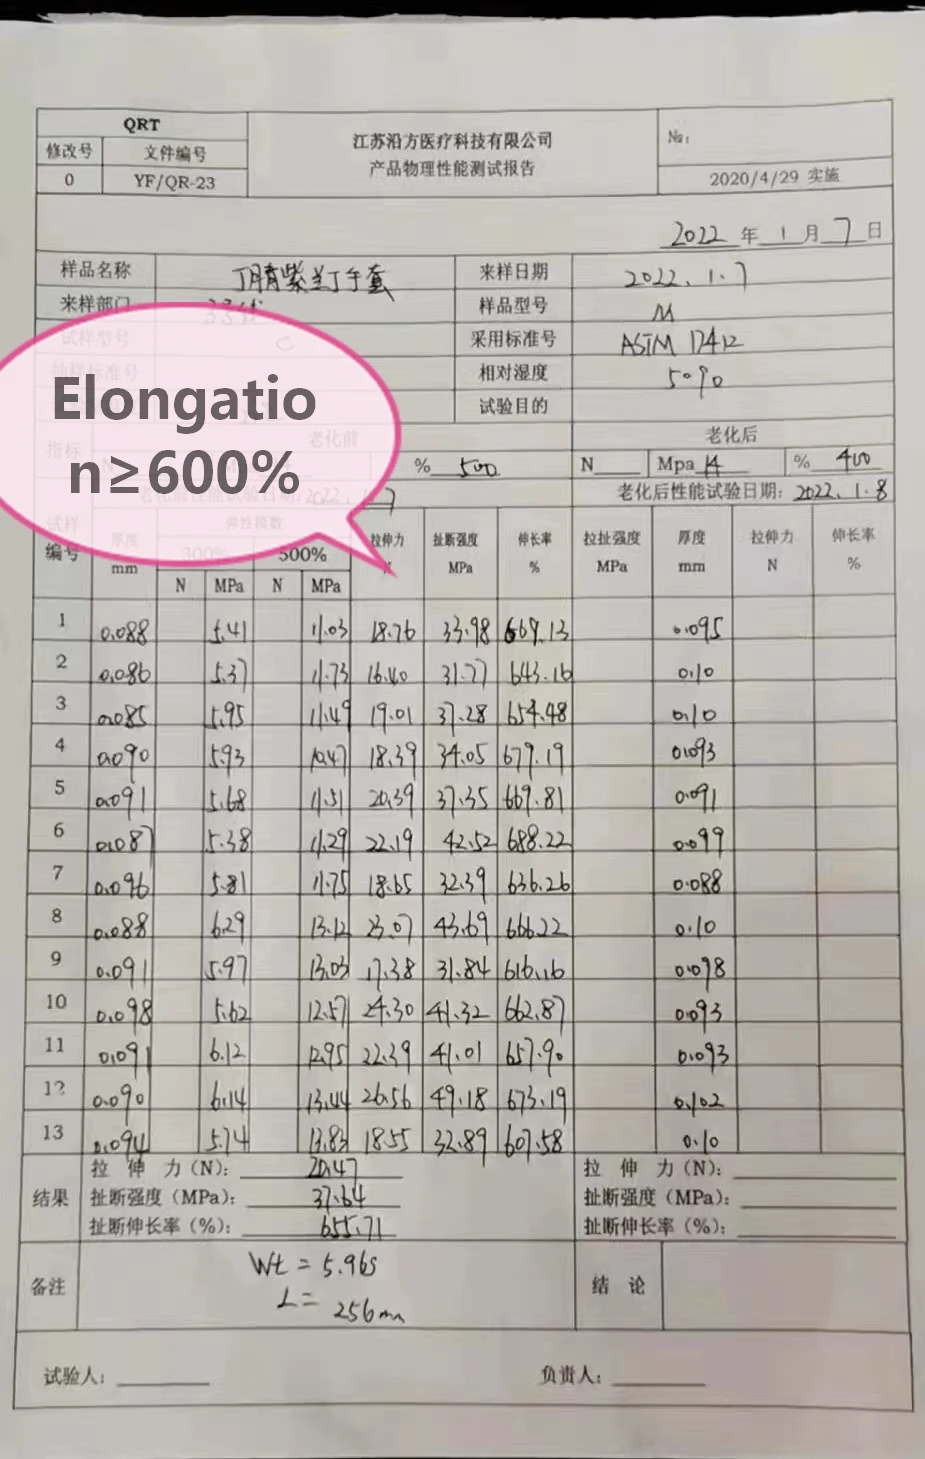 QRT
修改号 文件编号
0 YF/QR-23
江苏沿方医疗科技有限公司
产品物理性能测试报告
№:
2020/4/29 实施
2022 年 1 月 7 日
样品名称 丁腈紫兰丁手套 来样日期 2022.1.7
来样部门 样品型号 M
试样型号 C 采用标准号 ASTM D412
抽样标准号 相对湿度 50%
试验目的
Elongatio
n≥600%
指标 老化前 老化后
% 500 N Mpa 14 % 400
老化前性能试验日期: 2022.1.7 老化后性能试验日期: 2022.1.8
试样 弹性模数
编号 厚度 mm 300% 500% 拉伸力 N 扯断强度 MPa 伸长率 % 拉扯强度 MPa 厚度 mm 拉伸力 N 伸长率 %
N MPa N MPa
1 0.088 5.41 11.03 18.76 33.98 669.13 0.095
2 0.086 5.37 11.73 16.40 31.77 643.16 0.10
3 0.085 5.95 11.49 19.01 37.28 654.48 0.10
4 0.090 5.93 10.47 18.39 34.05 679.19 0.093
5 0.091 5.68 11.51 20.39 37.35 669.81 0.091
6 0.087 5.38 11.29 22.19 42.52 688.22 0.099
7 0.096 5.81 11.75 18.65 32.39 636.26 0.088
8 0.088 6.29 13.12 23.07 43.69 666.22 0.10
9 0.091 5.97 13.03 17.38 31.84 616.16 0.098
10 0.098 5.62 12.57 24.30 41.32 662.87 0.093
11 0.091 6.12 12.95 22.39 41.01 657.90 0.093
12 0.090 6.14 13.44 26.56 49.18 673.19 0.102
13 0.094 5.74 13.83 18.55 32.89 607.58 0.10
结果 拉 伸 力(N): 20.47 拉 伸 力(N):
扯断强度(MPa): 37.64 扯断强度(MPa):
扯断伸长率(%): 655.71 扯断伸长率(%):
备注 Wt = 5.96g 结 论
L = 256mm
试验人: 负责人: